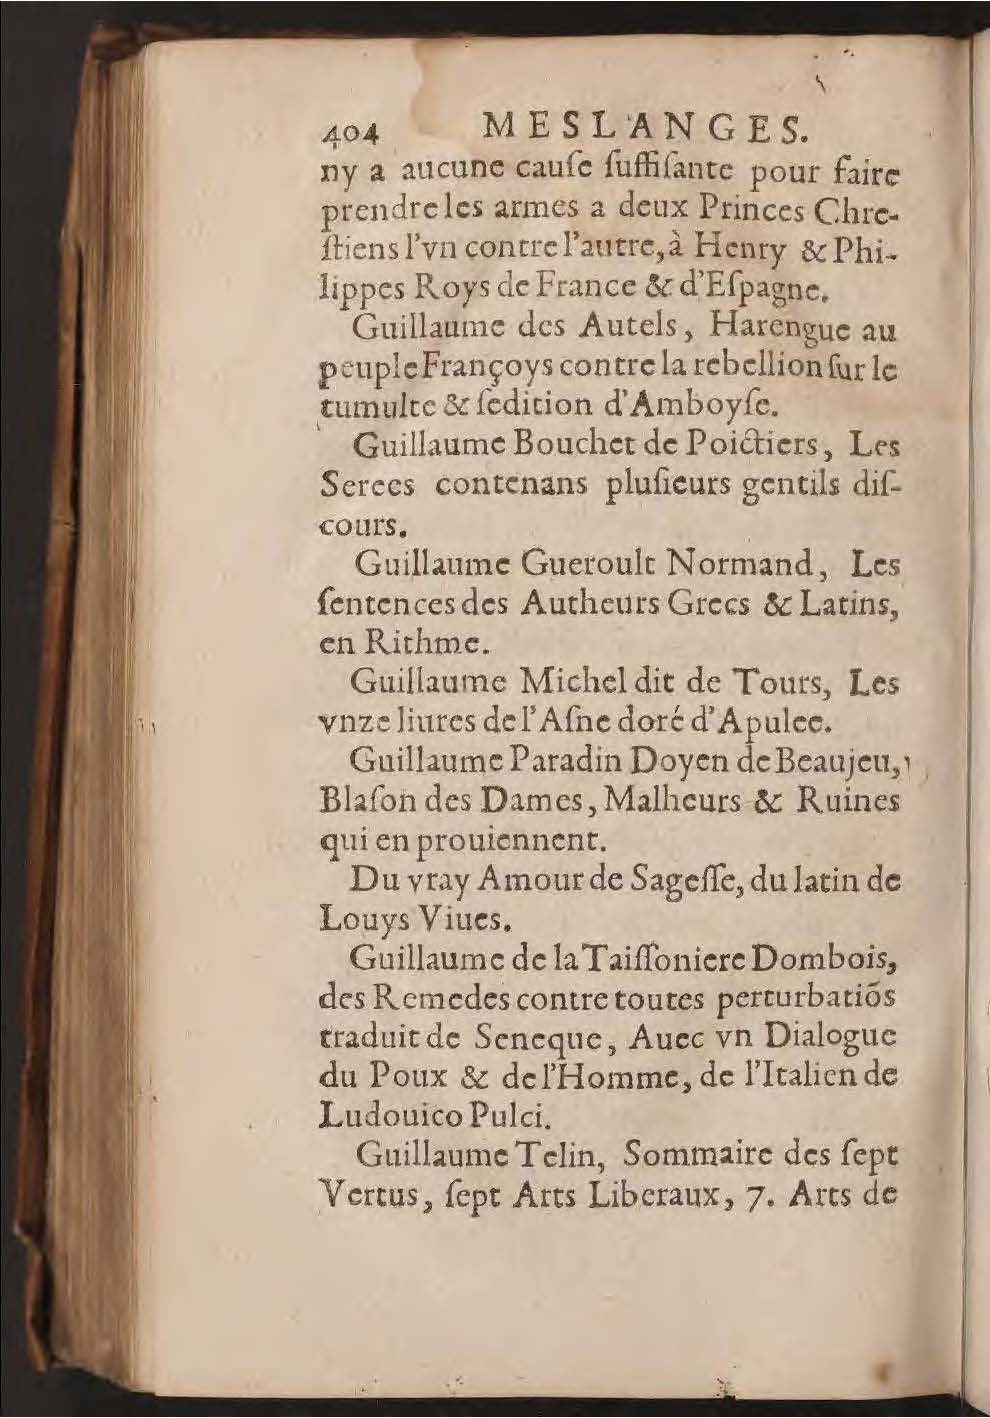 404 MESLANGES.
ny a aucune cauſe ſuffiſante pour faire
prendre les armes a deux Princes Chre-
ſtiens l'vn contre l'autre, à Henry & Phi-
lippes Roys de France & d'Eſpagne.
Guillaume des Autels, Harengue au
peuple Françoys contre la rebellion ſur le
tumulte & ſedition d'Amboyſe.
Guillaume Bouchet de Poictiers, Les
Serees contenans pluſieurs gentils diſ-
cours.
Guillaume Gueroult Normand, Les
ſentences des Autheurs Grecs & Latins,
en Rithme.
Guillaume Michel dit de Tours, Les
vnze liures de l'Aſne doré d'Apulee.
Guillaume Paradin Doyen de Beaujeu,
Blaſon des Dames, Malheurs & Ruines
qui en prouiennent.
Du vray Amour de Sageſſe, du latin de
Louys Viues.
Guillaume de la Taiſſoniere Dombois,
des Remedes contre toutes perturbatiõs
traduit de Seneque, Auec vn Dialogue
du Poux & de l'Homme, de l'Italien de
Ludouico Pulci.
Guillaume Telin, Sommaire des ſept
Vertus, ſept Arts Liberaux, 7. Arts de